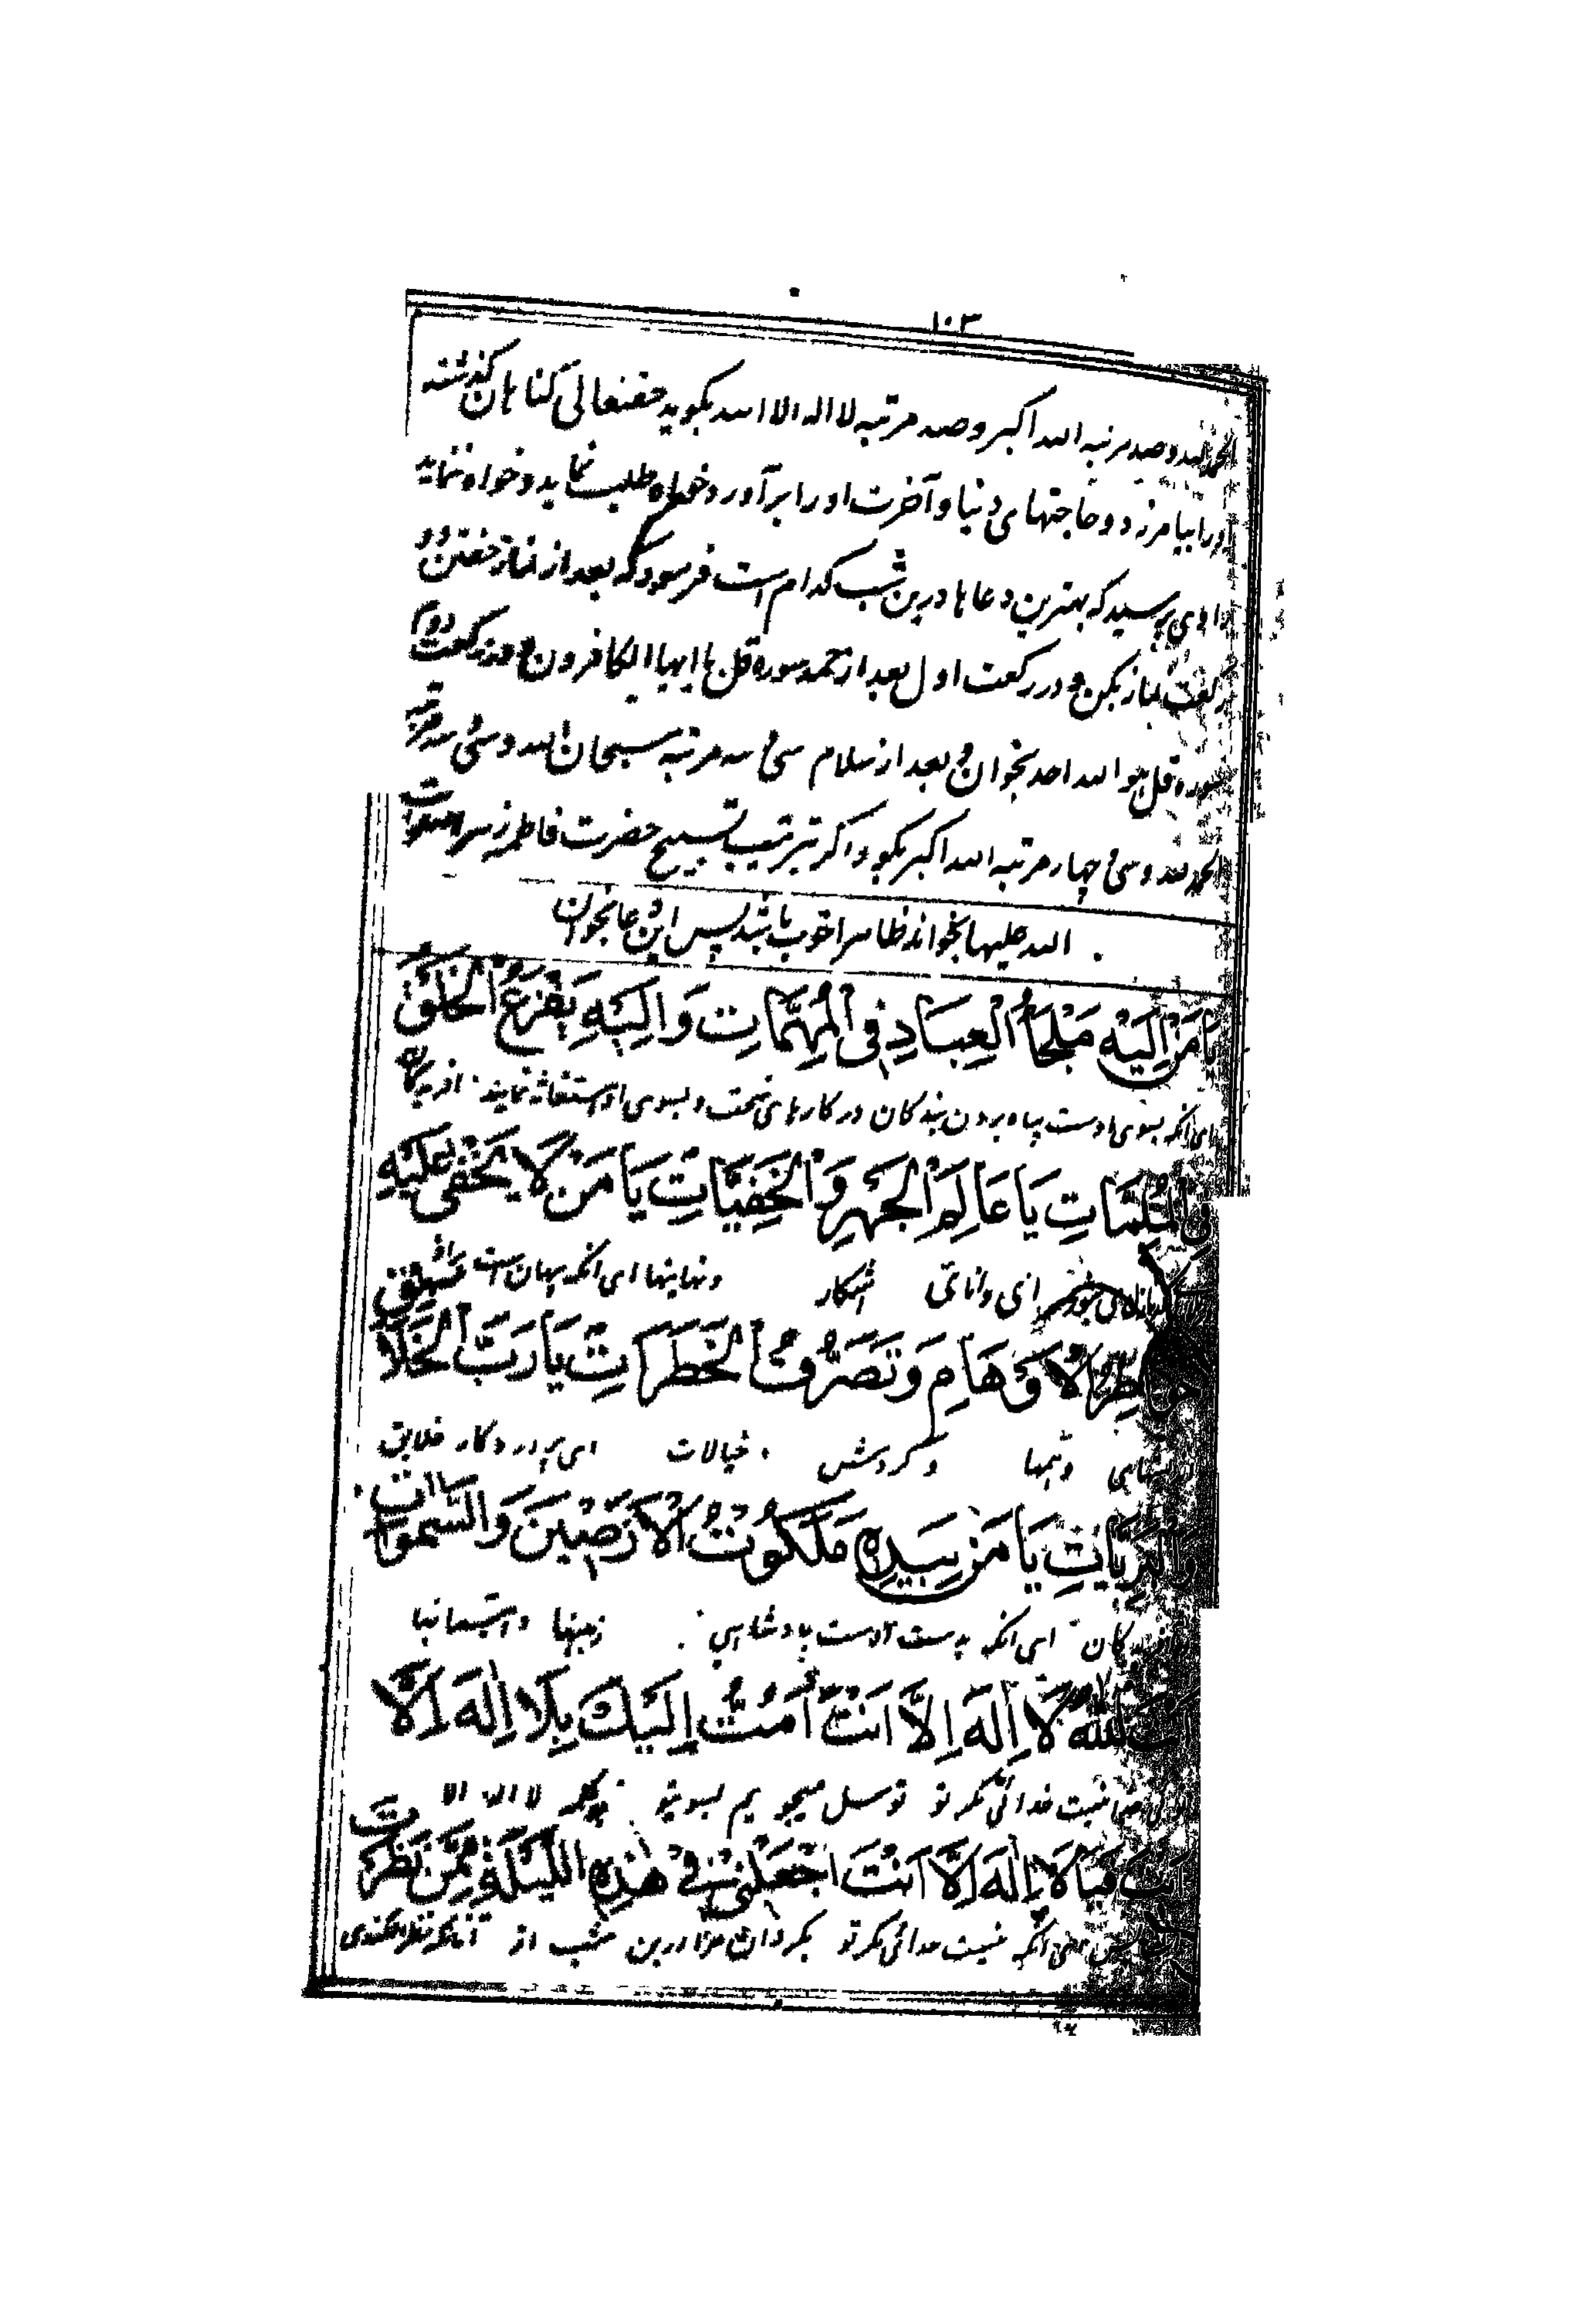 ١٠٣
الحمد لله وصد مرتبه الله اکبر وصد مرتبه لا اله الا الله بکوید حقتعالی کناهان کذشته
اورا بیامرزد و حاجتهای دنیا و آخرت اورا برآورد خواه طلب نماید و خواه ننماید
راوی پرسید که بهترین دعاها درین شب کدام است فرمود که بعد از نماز خفتن دو
رکعت نماز بکن و در رکعت اول بعد از حمد سوره قل یا ایها الکافرون و در رکعت دوم
سوره قل هو الله احد بخوان و بعد از سلام سی و سه مرتبه سبحان الله و سی و سه مرتبه
الحمد لله و سی و چهار مرتبه الله اکبر بکو و اکر بترتیب تسبیح حضرت فاطمه زهرا صلوات
الله علیها بخواند ظاهرا خوب باشد پس این دعا بخوان
یَا مَنْ اِلَیْهِ مَلْجَأُ الْعِبَادِ فِی الْمُهِمَّاتِ وَ اِلَیْهِ یَفْزَعُ الْخَلْقُ
ای انکه بسوی اوست پناه بردن بندکان در کارهای سخت و بسوی او استغاثه نمایند
فِی الْمُلِمَّاتِ یَا عَالِمَ الْجَهْرِ وَ الْخَفِیَّاتِ یَا مَنْ لَا یَخْفٰی عَلَیْهِ
ای دانای اشکار و نهانیها ای انکه پنهان نیست
خَوَاطِرُ الْاَوْهَامِ وَ تَصَرُّفُ الْخَطَرَاتِ یَا رَبَّ الْخَلَائِقِ
وهمها و کردش خیالات ای پروردکار خلایق
وَ الْبَرِیَّاتِ یَا مَنْ بِیَدِهِ مَلَکُوتُ الْاَرَضِینَ وَ السَّمٰوَاتِ
ای انکه بدست اوست پادشاهی زمینها و اسمانها
اَنْتَ اللهُ لَا اِلٰهَ اِلَّا اَنْتَ اَمُتُّ اِلَیْكَ بِلَا اِلٰهَ اِلَّا
نیست خدائی مکر تو توسل میجویم بسوی تو لا اله الا
اَنْتَ فَیَا لَا اِلٰهَ اِلَّا اَنْتَ اجْعَلْنِی فِی هٰذِهِ اللَّیْلَةِ مِمَّنْ نَظَرْتَ
انکه نیست خدائی مکر تو بکردان مرا درین شب از